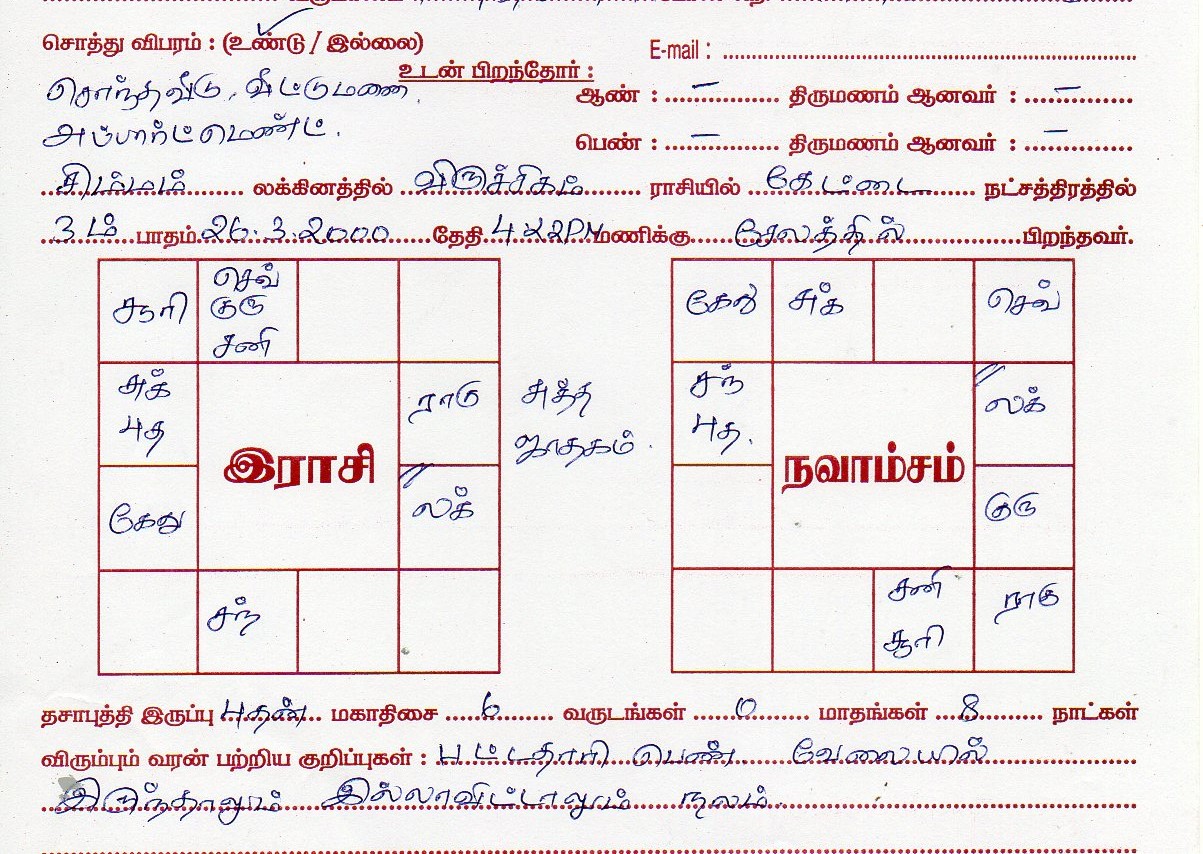 சொத்து விபரம் : (உண்டு / இல்லை)
E-mail :
உடன் பிறந்தோர் :
சொந்தவீடு, வீட்டுமணை,
ஆண் : – திருமணம் ஆனவர் : –
அப்பார்ட்மெண்ட்.
பெண் : – திருமணம் ஆனவர் : –
சிம்மம் லக்கினத்தில் விருச்சிகம் ராசியில் கேட்டை நட்சத்திரத்தில்
3ம் பாதம் 26.3.2000 தேதி 4.22PM மணிக்கு சேலத்தில் பிறந்தவர்.
சூரி
செவ்
குரு
சனி
சுக்
புத
ராகு
கேது
லக்
சந்
இராசி
சுத்த
ஜாதகம்.
கேது
சுக்
செவ்
சந்
புத.
லக்
குரு
சனி
சூரி
ராகு
நவாம்சம்
தசாபுத்தி இருப்பு புதன் மகாதிசை 6 வருடங்கள் 0 மாதங்கள் 8 நாட்கள்
விரும்பும் வரன் பற்றிய குறிப்புகள் : பட்டதாரி பெண் வேலையில்
இருந்தாலும் இல்லாவிட்டாலும் நலம்.